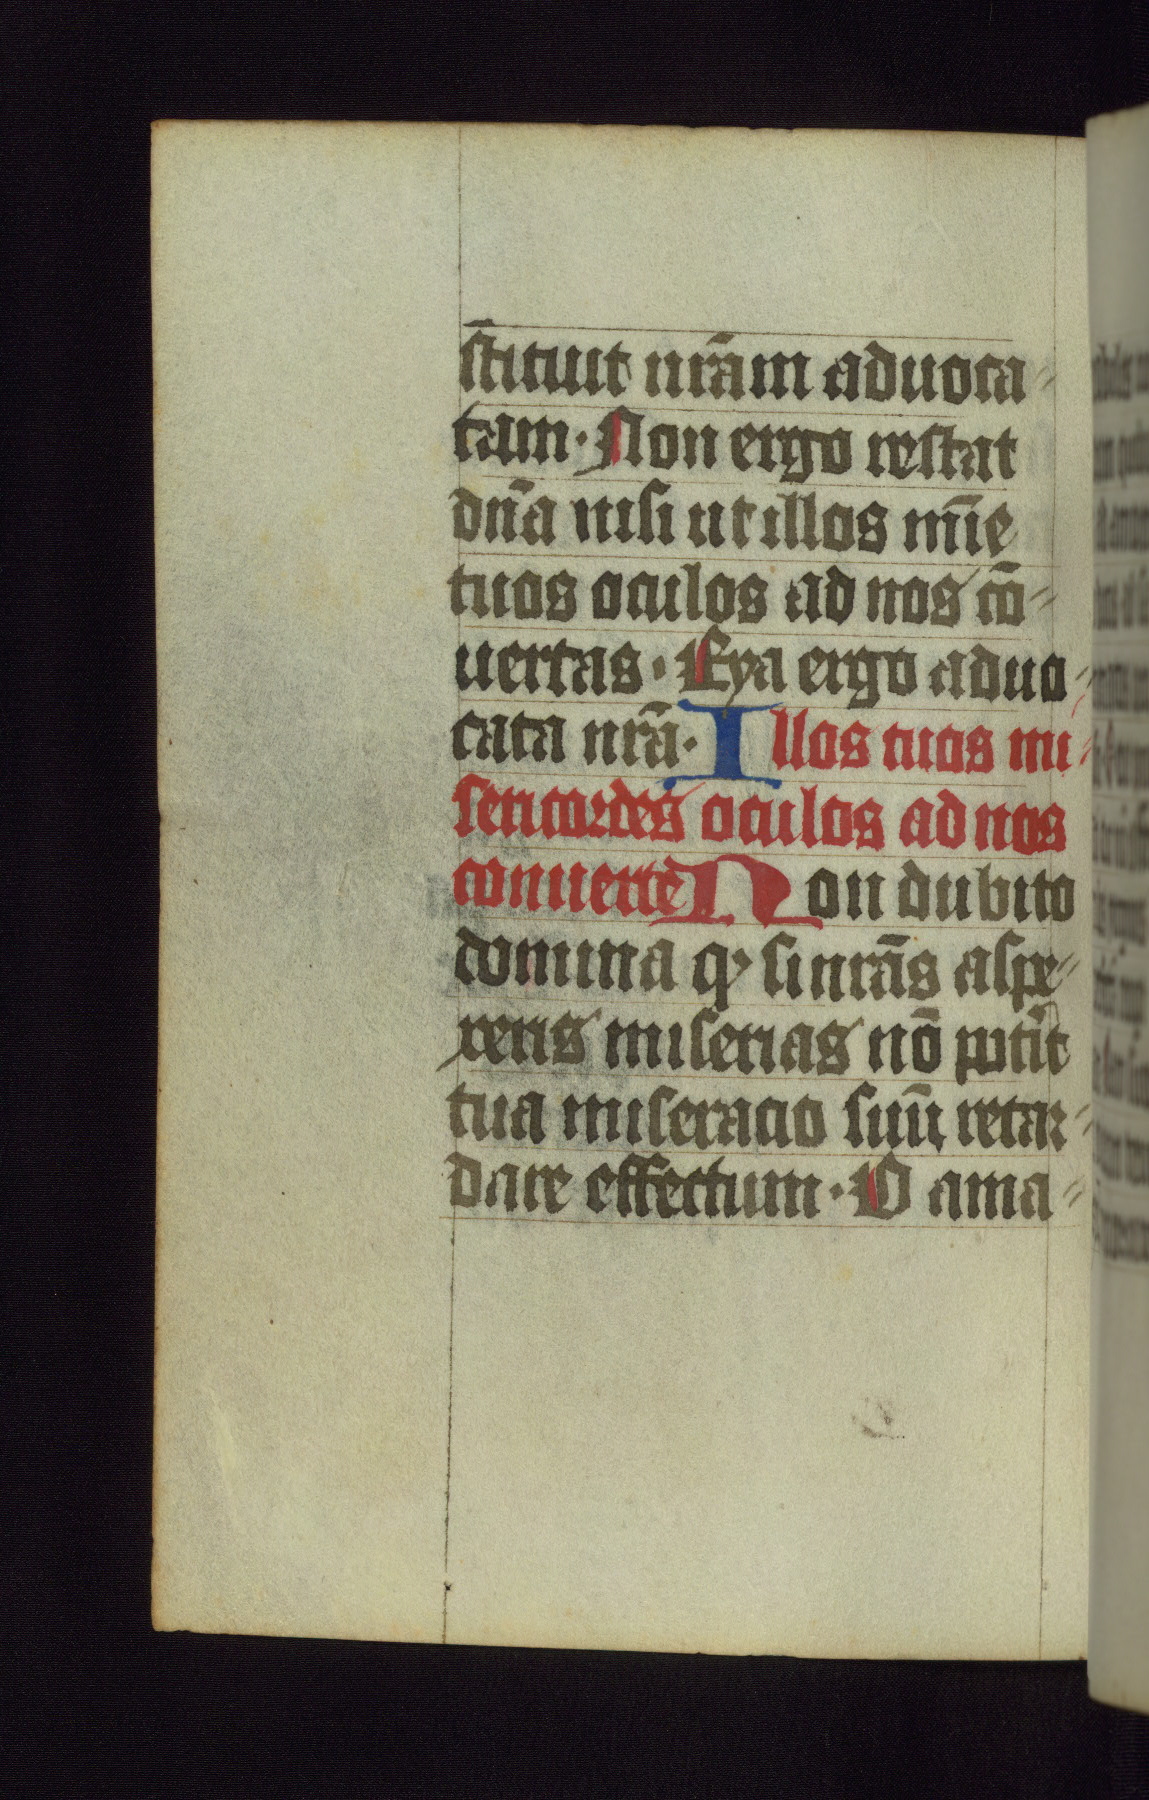 s̄tituit nr̄am aduoca⸗
tam · Non ergo restat
dn̄a nisi ut illos mīe
tuos oculos ad nos cō⸗
uertas · Eya ergo aduo⸗
cata nr̄a · Illos tuos mi⸗
sericordes oculos ad nos
conuerte Non dubito
domina qꝫ si nrās aspe⸗
xeris miserias nō potit
tua miseracio suū retar⸗
dare effectum · O ama⸗